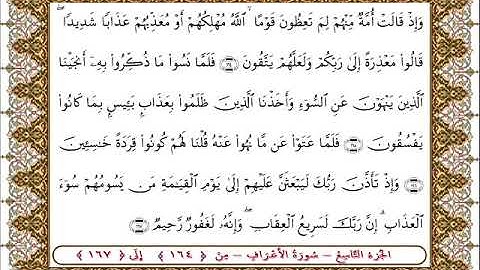 وَإِذْ قَالَتْ أُمَّةٌ مِّنْهُمْ لِمَ تَعِظُونَ قَوْمًا ۙ اللَّهُ مُهْلِكُهُمْ أَوْ مُعَذِّبُهُمْ عَذَابًا شَدِيدًا ۖ
قَالُوا مَعْذِرَةً إِلَىٰ رَبِّكُمْ وَلَعَلَّهُمْ يَتَّقُونَ ﴿١٦٤﴾ فَلَمَّا نَسُوا مَا ذُكِّرُوا بِهِ أَنجَيْنَا
الَّذِينَ يَنْهَوْنَ عَنِ السُّوءِ وَأَخَذْنَا الَّذِينَ ظَلَمُوا بِعَذَابٍ بَئِيسٍ بِمَا كَانُوا
يَفْسُقُونَ ﴿١٦٥﴾ فَلَمَّا عَتَوْا عَن مَّا نُهُوا عَنْهُ قُلْنَا لَهُمْ كُونُوا قِرَدَةً خَاسِئِينَ
﴿١٦٦﴾ وَإِذْ تَأَذَّنَ رَبُّكَ لَيَبْعَثَنَّ عَلَيْهِمْ إِلَىٰ يَوْمِ الْقِيَامَةِ مَن يَسُومُهُمْ سُوءَ
الْعَذَابِ ۗ إِنَّ رَبَّكَ لَسَرِيعُ الْعِقَابِ ۖ وَإِنَّهُ لَغَفُورٌ رَّحِيمٌ ﴿١٦٧﴾
الجزء التاسع - سورة الأعراف - من ﴿ ١٦٤ ﴾ إلى ﴿ ١٦٧ ﴾